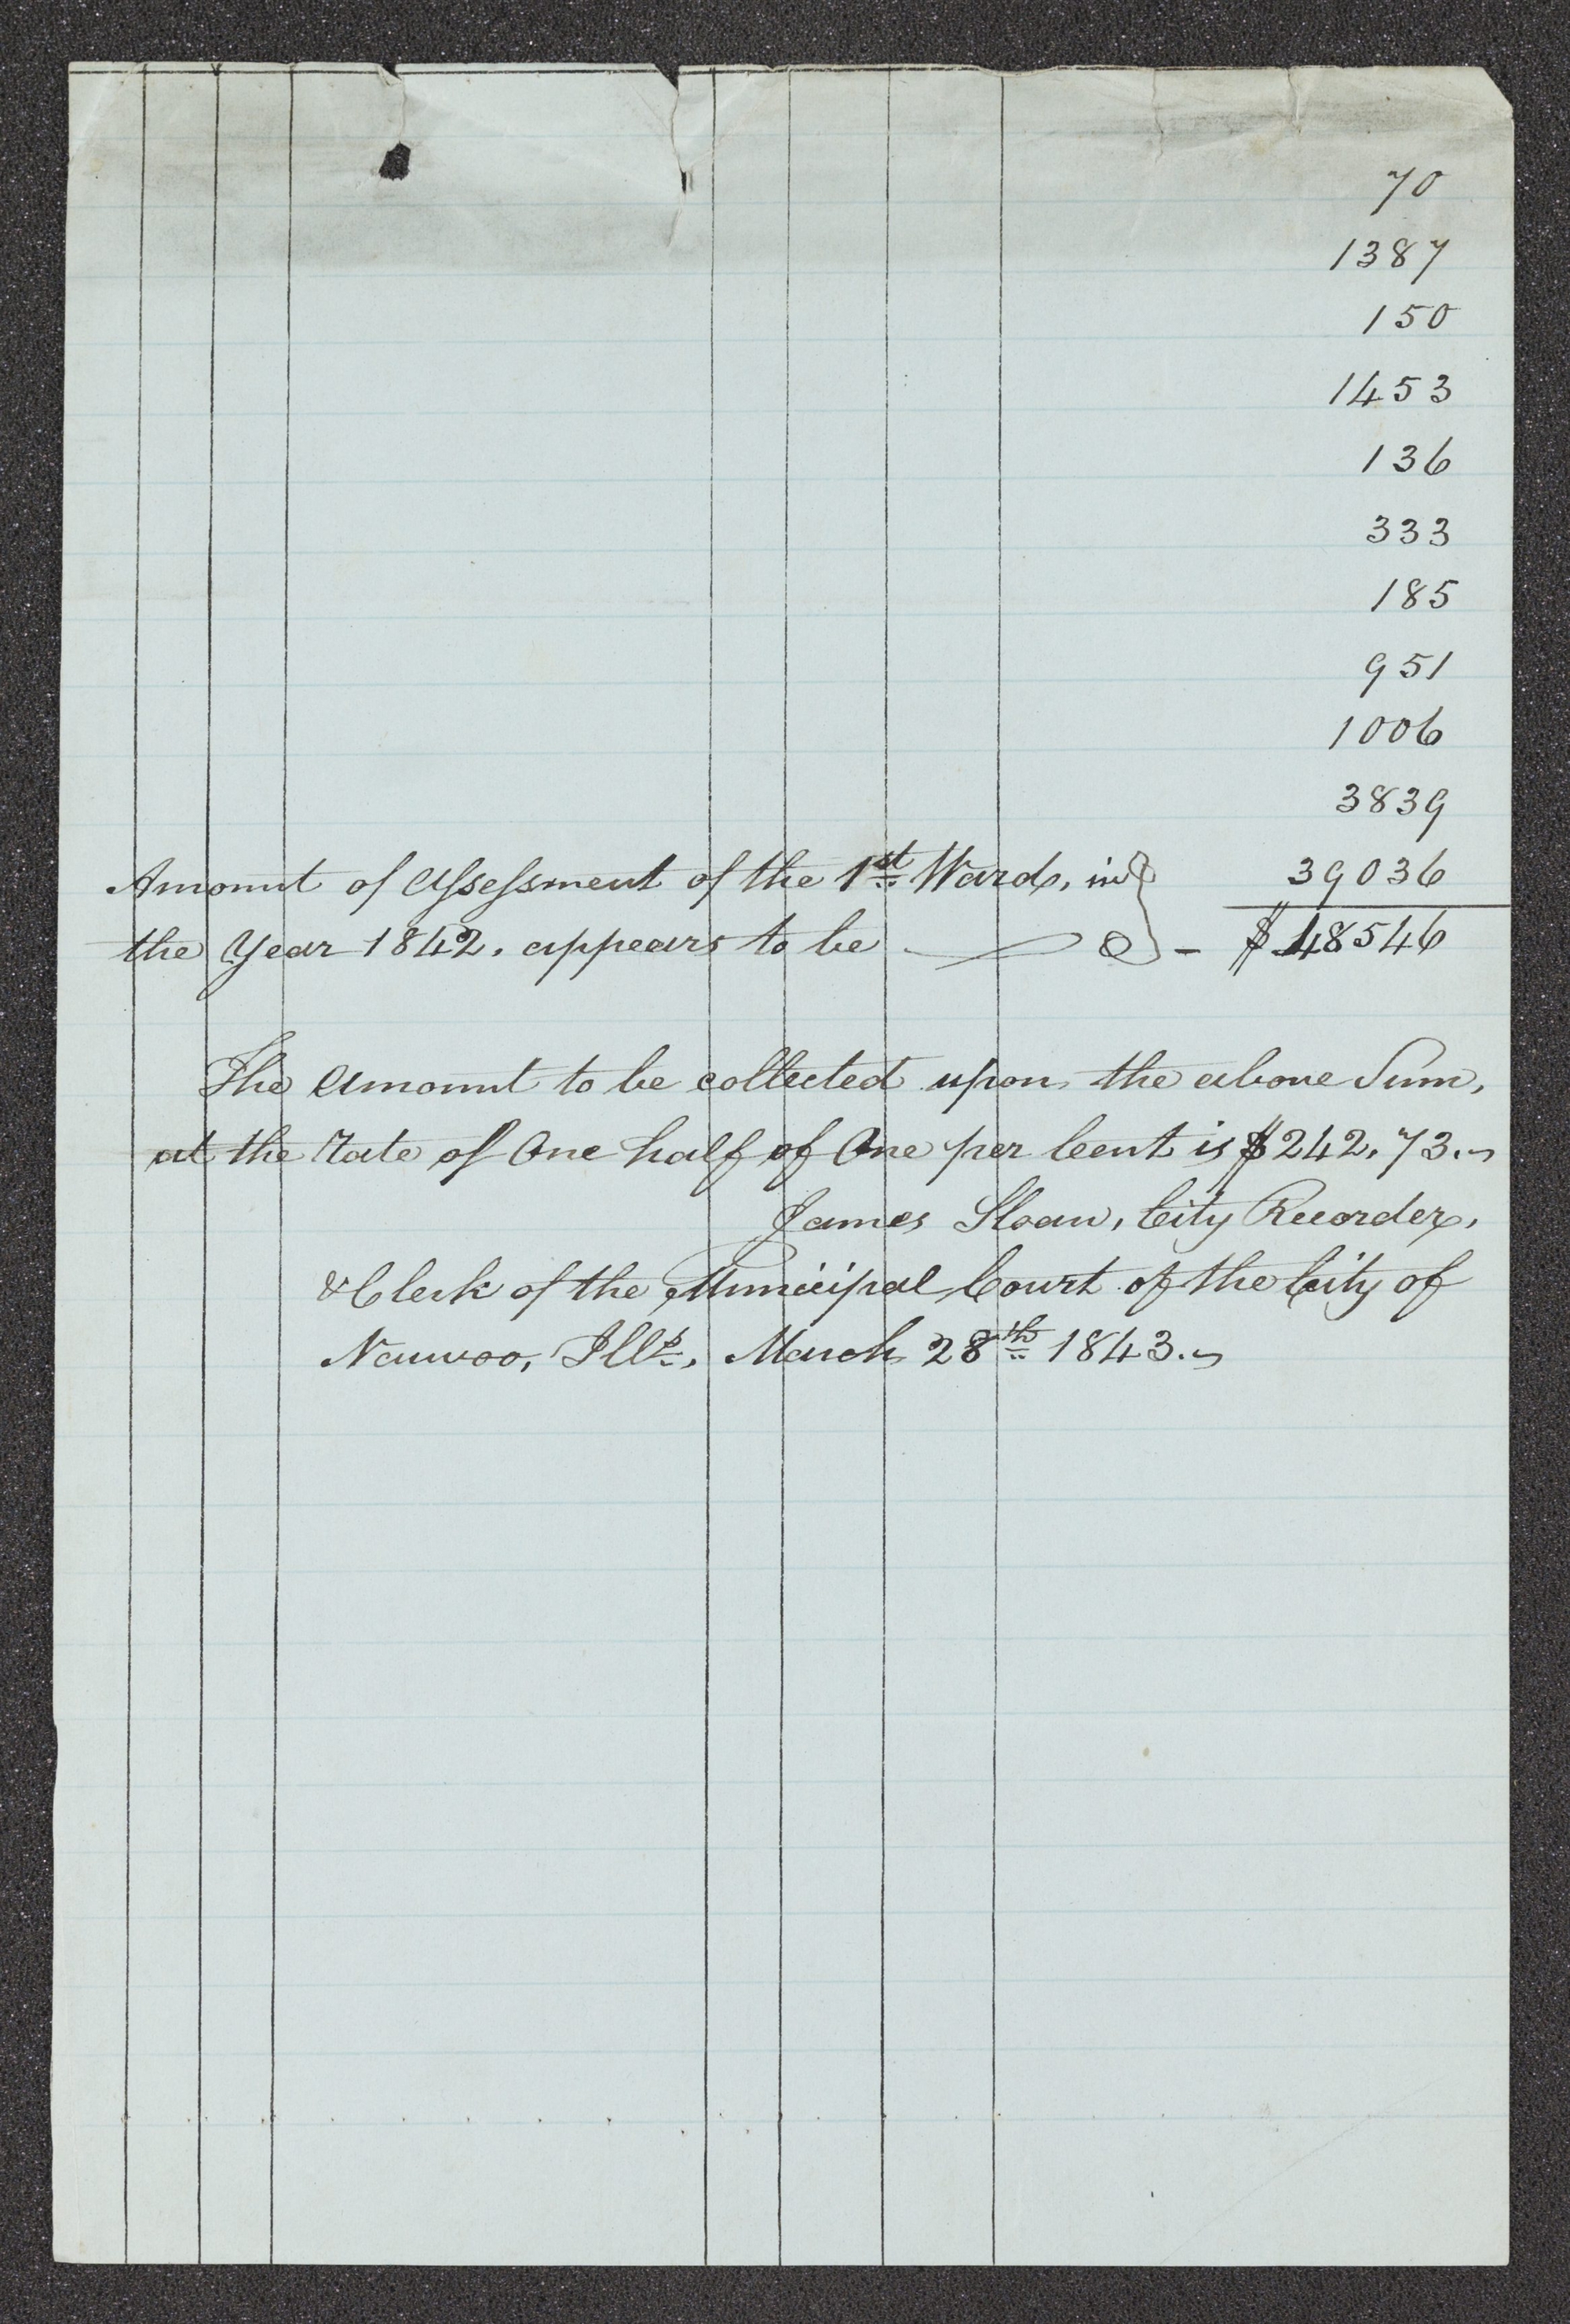 70
1387
150
1453
136
333
185
951
1006
3839
Amount of Assessment of the 1st Ward, in } 39036
the Year 1842. appears to be - $ 48546
The Amount to be collected upon the above Sum,
at the Rate of One half of One per Cent is $242.73.
James Sloan, City Recorder,
& Clerk of the Municipal Court of the City of
Nauvoo, Ills., March 28th 1843.